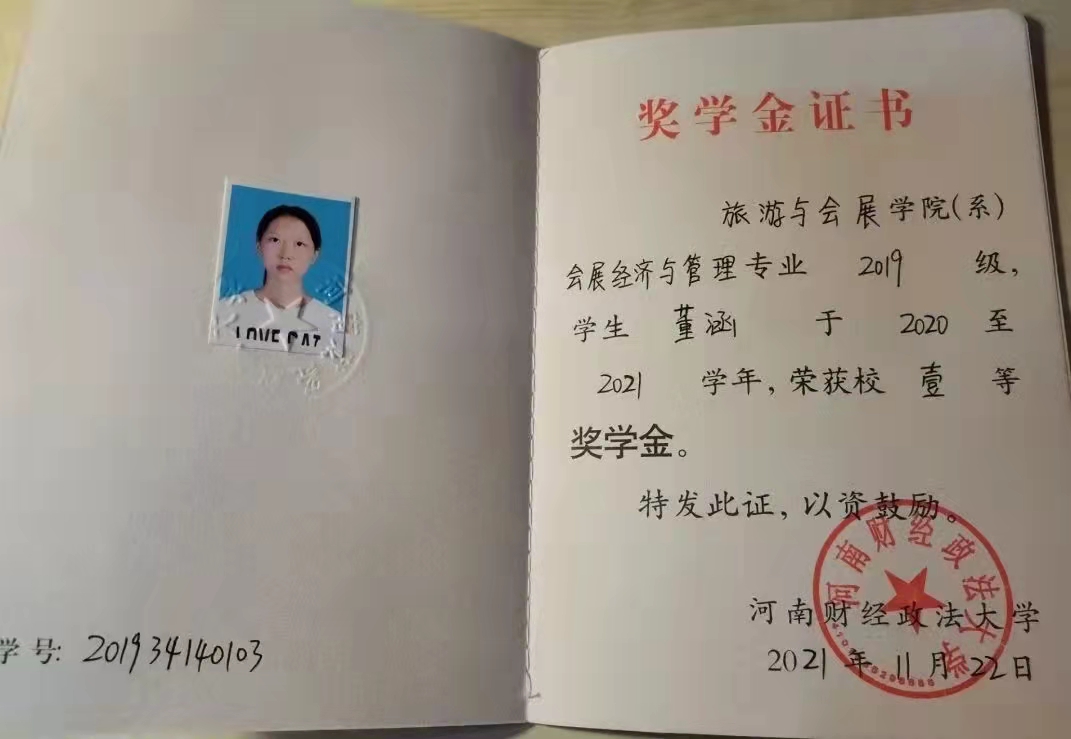 LOVE CAT
学号: 201934140103
奖学金证书
旅游与会展学院(系)
会展经济与管理专业 2019 级,
学生 董涵 于 2020 至
2021 学年, 荣获校 壹 等
奖学金。
特发此证, 以资鼓励。
河南财经政法大学
河南财经政法大学
2021 年 11 月 22 日